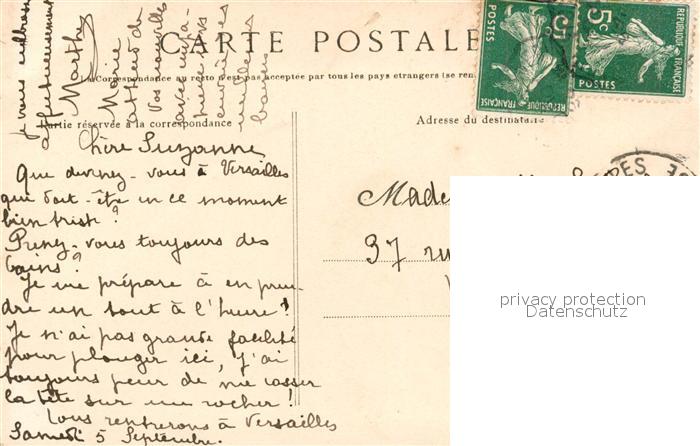 CARTE POSTALE
La Correspondance au recto n'est pas acceptée par tous les pays étrangers (se ren
Partie réservée à la correspondance
Adresse du destinataire
5c
RÉPUBLIQUE FRANÇAISE
POSTES
5c
RÉPUBLIQUE FRANÇAISE
POSTES
Chère Suzanne
Que devenez-vous à Versailles
qui doit-être en ce moment
bien triste?
Prenez-vous toujours des
bains?
Je me prépare à en pren-
dre un tout à l'heure!
Je n'ai pas grande facilité
pour plonger ici, j'ai
toujours peur de me casser
la tête sur un rocher!
Nous rentrerons à Versailles
Samedi 5 Septembre.
Je vous embrasse
affectueusement
Marthe
Marie
attend de
vos nouvelles
avec impa-
Made
37 ru
privacy protection
Datenschutz